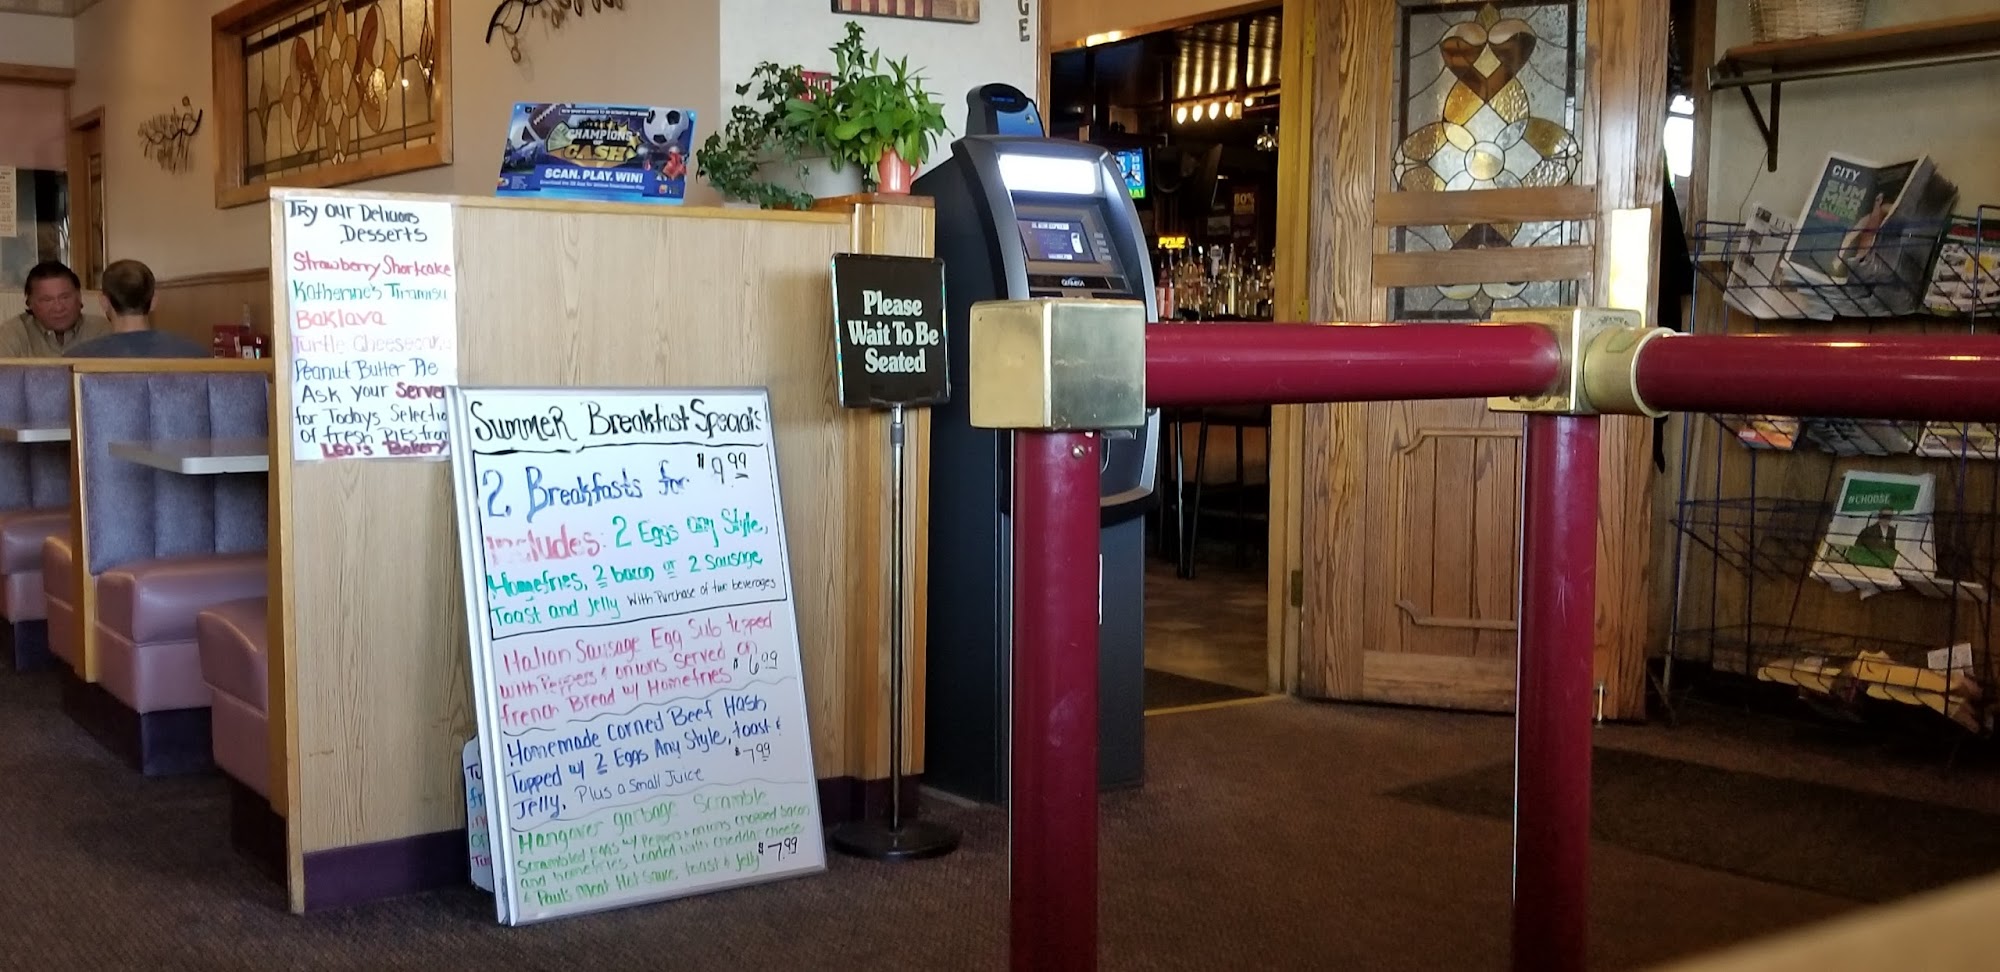 CHAMPIONS
OF
CASH
SCAN. PLAY. WIN!
Try Our Delicious
Desserts
Strawberry Shortcake
Katherine's Tiramisu
Baklava
Turtle Cheesecake
Peanut Butter Pie
Ask Your Server
for Todays Selectio
of fresh PIEs from
LEO'S Bakery
Please
Wait To Be
Seated
Summer Breakfast Specials
2 Breakfasts for $9.99
includes: 2 Eggs any Style,
Homefries, 2 bacon or 2 sausage
Toast and Jelly with Purchase of two beverages
Italian Sausage Egg Sub topped
with Peppers & onions served on
french Bread w/ Homefries $6.99
Homemade Corned Beef Hash
Topped w/ 2 Eggs Any Style, toast &
Jelly, Plus a Small Juice $7.99
Hangover garbage Scramble
Scrambled Eggs w/ Peppers & onions chopped bacon
and homefries Loaded with cheddar cheese
& Pauls Meat Hot Sauce toast & Jelly $7.99
CITY
SUM
MER
GUIDE
#CHOOSE
80%